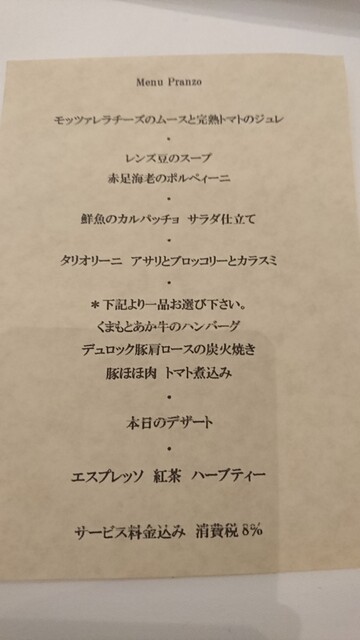 Menu Pranzo
モッツァレラチーズのムースと完熟トマトのジュレ
・
レンズ豆のスープ
赤足海老のポルペィーニ
・
鮮魚のカルパッチョ サラダ仕立て
・
タリオリーニ アサリとブロッコリーとカラスミ
・
＊下記より一品お選び下さい。
くまもとあか牛のハンバーグ
デュロック豚肩ロースの炭火焼き
豚ほほ肉 トマト煮込み
・
本日のデザート
・
エスプレッソ 紅茶 ハーブティー
サービス料金込み 消費税8%